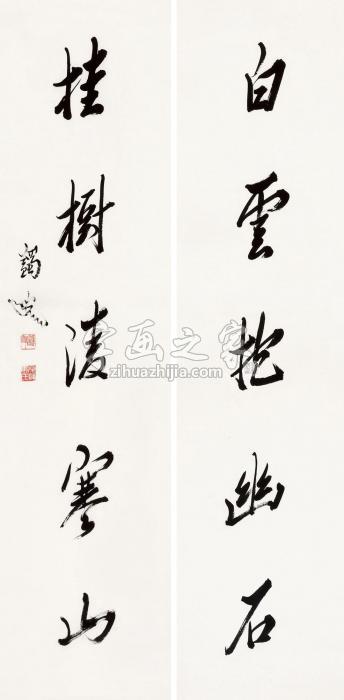 白雲抱幽石
桂樹凌寒山
字画之家
zihuazhijia.com